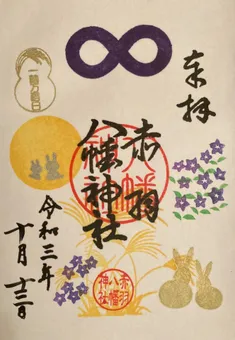 奉拝
赤羽
八幡神社
八幡
赤羽
八幡
神社
令和三年
十月十三日